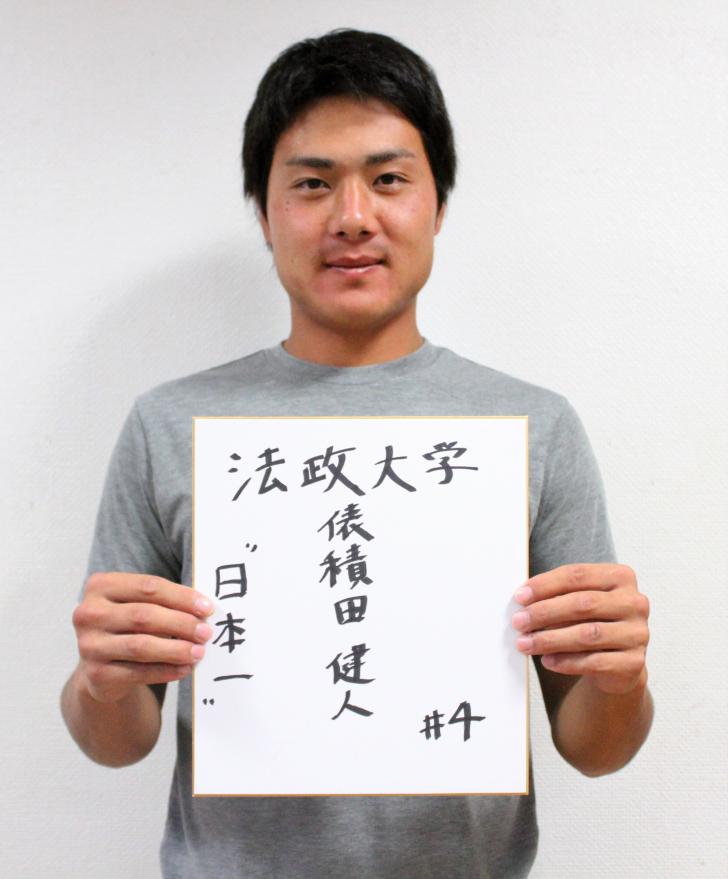 法政大学
俵積田 健人
#4
"日本一"